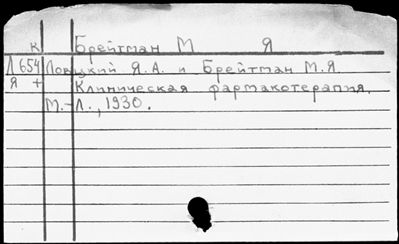 К Брейтман М Я
Л 654 Ловцкий Я.А. и Брейтман М.Я.
Я + Клиническая фармакотерапия.
М.-Л., 1930.